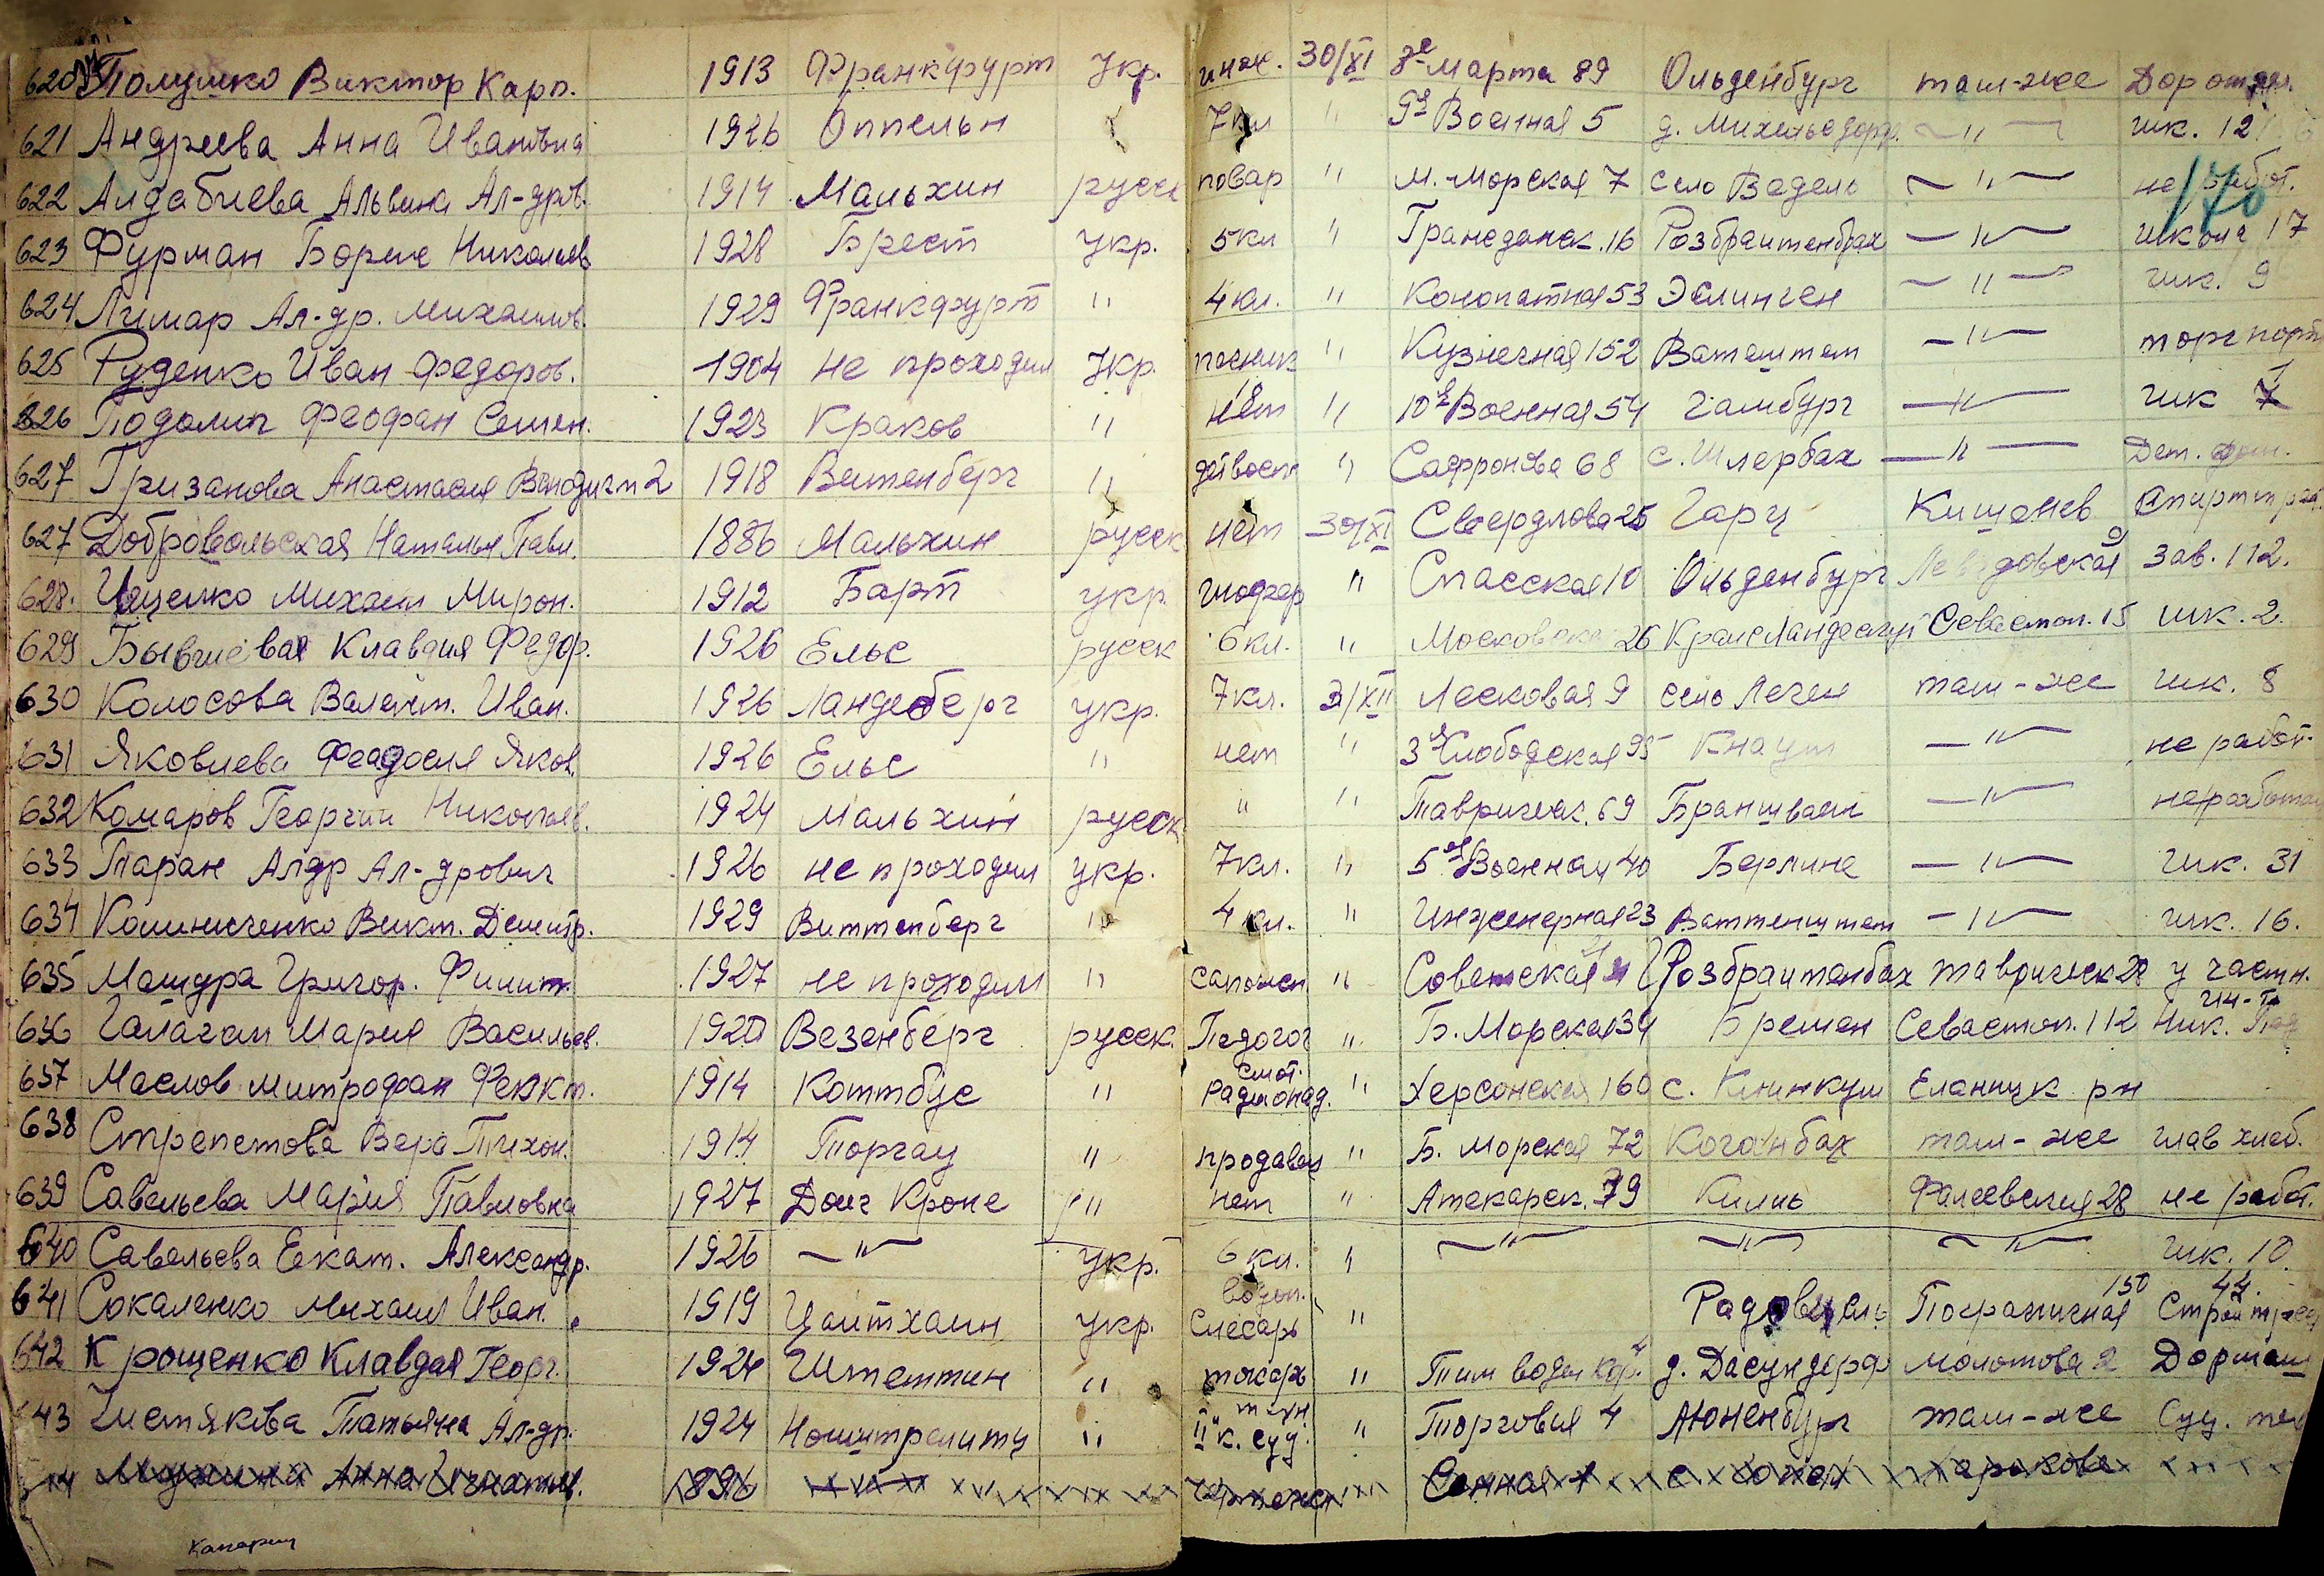 620 Полушко Виктор Карп. 1913 Франкфурт Укр. инж. 30/XI 8е Марта 89 Ольденбург там-же
621 Андреева Анна Ивановна 1926 Оппельн " 7кл " 9я Военная 5 д. Михельсдорф —"— шк. 12
622 Алдабиева Альвина Ал-дров. 1914 Мальхин русск повар " М. Морская 7 село Ведель —"— не работ.
623 Фурман Борис Николаев 1928 Брест укр. 5кл " Гражданск. 16 Розбрайтенбах —"— школа 17
624 Лимар Ал-др. Михайлов. 1929 Франкфурт " 4кл. " Конопатная 53 Эслинген —"— шк. 9
625 Руденко Иван Федоров. 1904 не проходил Укр. " Кузнечная 152 Ватештет —"— торг порт
626 Подолин Феофан Семен. 1923 Краков " нет " 10я Военная 54 Гамбург —"— шк
627 Гризанова Анастасия 1918 Витенберг " " Сафронова 68 с. Шлербах —"— Дет. дом.
627 Добровольская Наталья Павл. 1886 Мальхин русск нет 30/XI Свердлова 25 Гарц Кишенев
628. Ищенко Михаил Мирон. 1912 Барт укр. шофер " Спасская 10 Ольденбург зав. 112.
629 Бывшева Клавдия Федор. 1926 Ельс русск 6кл. " Московская 26 Севастоп. 15 шк. 2.
630 Колосова Валент. Иван. 1926 Ландсберг укр. 7кл. 3/XII Лесковая 9 село Лечен там-же шк. 8
631 Яковлева Феодосия Яков. 1926 Ельс " нет " 3я Слободская 95 Кнаут —"— не работ.
632 Комаров Георгий Николаев. 1924 Мальхин русск " " Тавричек. 69 Браншвайг —"— не работал
633 Таран Алдр Ал-дрович 1926 не проходил укр. 7кл. " 5я Военная 40 Берлине —"— шк. 31
634 Колиниченко Викт. Дмитр. 1929 Виттенберг " 4кл. " Инженерная 23 Ваттенштет —"— шк. 16.
635 Машура Григор. Филип. 1927 не проходил " сапожн. " Советская Розбрайтенбах Таврическ 28 у частн.
636 Галаган Мария Васильев. 1920 Везенберг русск. Педогог " Б. Морская 34 Бремен Севастоп. 112 Ник.
637 Маслов Митрофан Феокт. 1914 Коттбус " Радионад. смот. " Херсонская 160 с. Клинкум Еланецк рн
638 Стрепетова Вера Тихон. 1914 Торгау " продавец " Б. Морская 72 Коганбах там-же глав хлеб.
639 Савельева Мария Павловна 1927 Дойч Кроне " нет " Апекарск. 79 Киль Фалеевская 28 не работ.
640 Савельева Екат. Александр. 1926 —"— укр. 6кл. " —"— —"— —"— шк. 10.
641 Сокаленко Михаил Иван. 1919 Цайтхайн укр. Слесарь " Пограничная 150
642 Крощенко Клавдия Георг. 1924 Штеттин " токарь " Молотова 2 Дормаш
643 Чистякова Татьяна Ал-др. 1924 Нойштрелитц " IIк. суд. техн. " Торговая 4 Люненбург там-же Суд. тех
Анна Игнатьев. 1896 Сенная